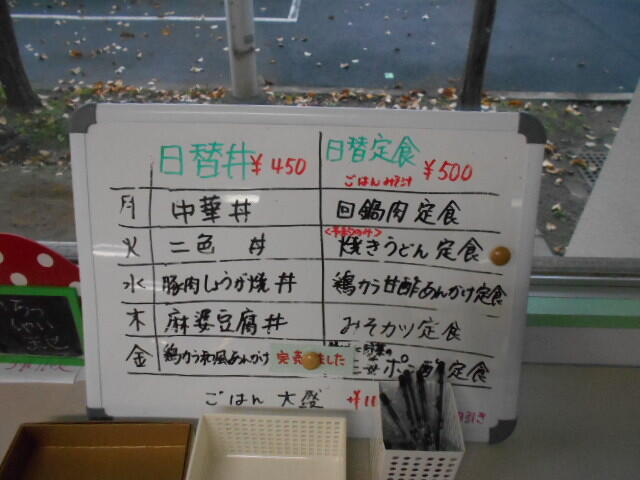 日替丼 ¥450
日替定食 ¥500
ごはんみそ汁
月 中華丼 回鍋肉定食
火 二色丼 焼きうどん定食
水 豚肉しょうが焼丼 鶏カラ甘酢あんかけ定食
木 麻婆豆腐丼 みそカツ定食
金 鶏カラ和風あんかけ 完売 ました ポン酢定食
ごはん大盛 +¥
引き